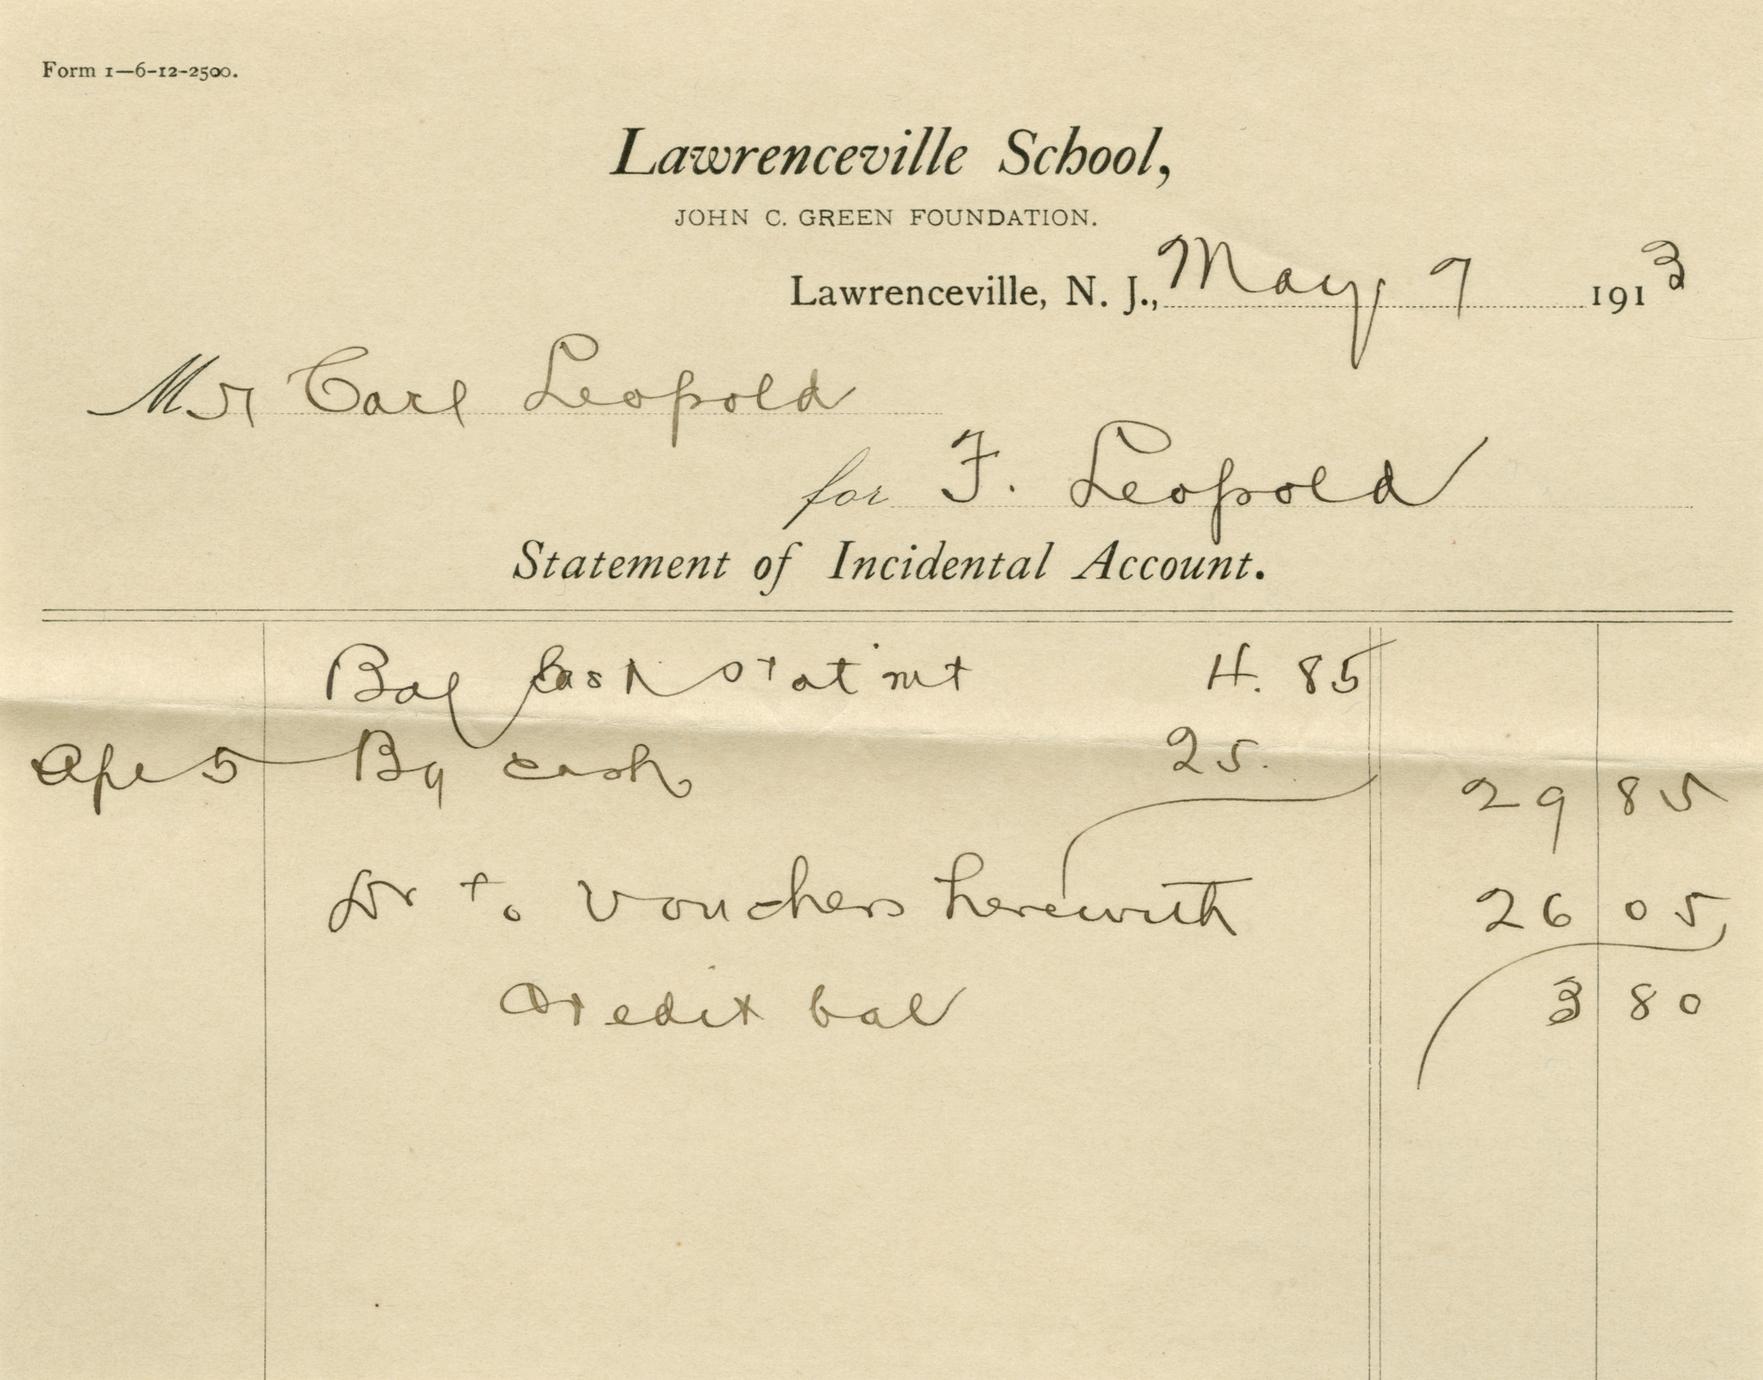 Form 1—6-12-2500.
Lawrenceville School,
JOHN C. GREEN FOUNDATION.
Lawrenceville, N. J., May 7 1913
Mr Carl Leopold
for F. Leopold
Statement of Incidental Account.
Bal last stat'mt 4.85
Apr 5 By cash 25. 29 85
Dr to vouchers herewith 26 05
Credit bal 3 80